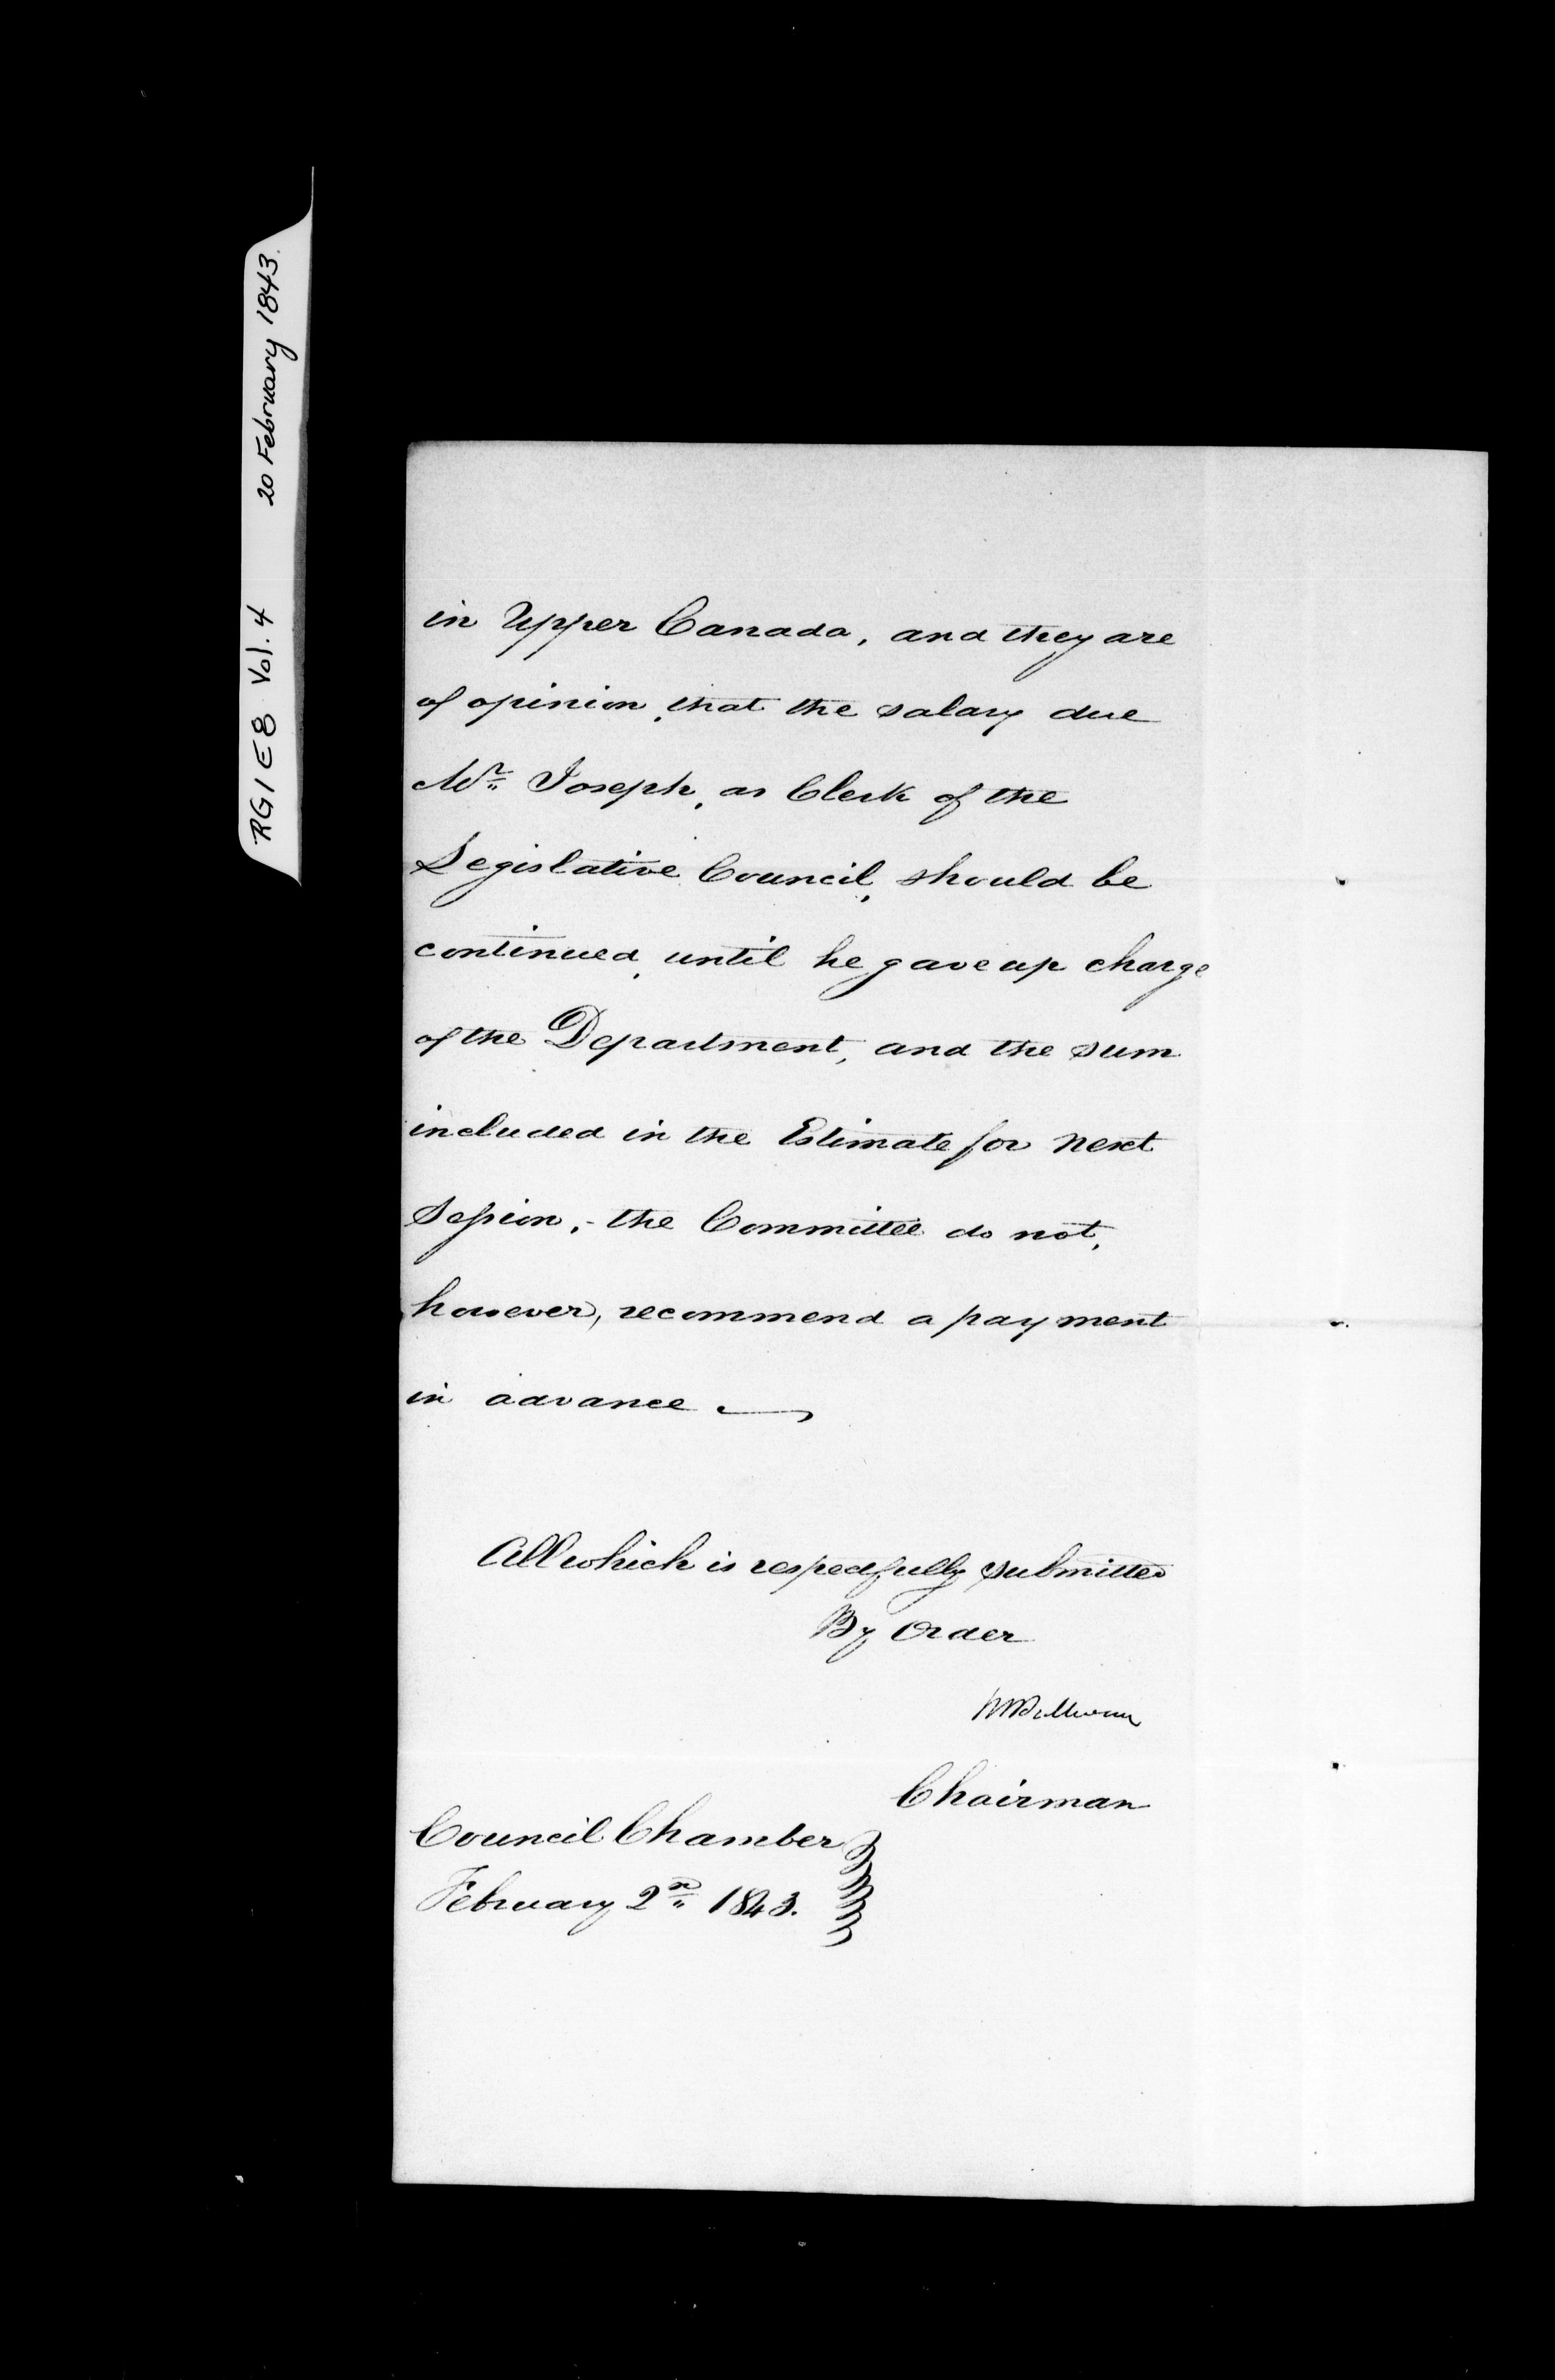 RG1E8 Vol. 4 20 February 1843.
in Upper Canada, and they are
of opinion, that the salary due
Mr. Joseph, as Clerk of the
Legislative Council, should be
continued, until he gave up charge
of the Department, and the sum
included in the Estimate for next
Session, - the Committee do not,
however, recommend a payment
in advance.
All which is respectfully submitted
By Order
Chairman
Council Chamber
February 2n 1843.